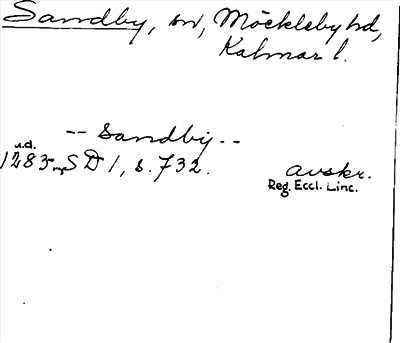 Sandby, sn, Möckleby hd,
Kalmar l.
-- Sandby --
u.d.
1285 SD 1, s. 732. avskr.
Reg. Eccl. Linc.